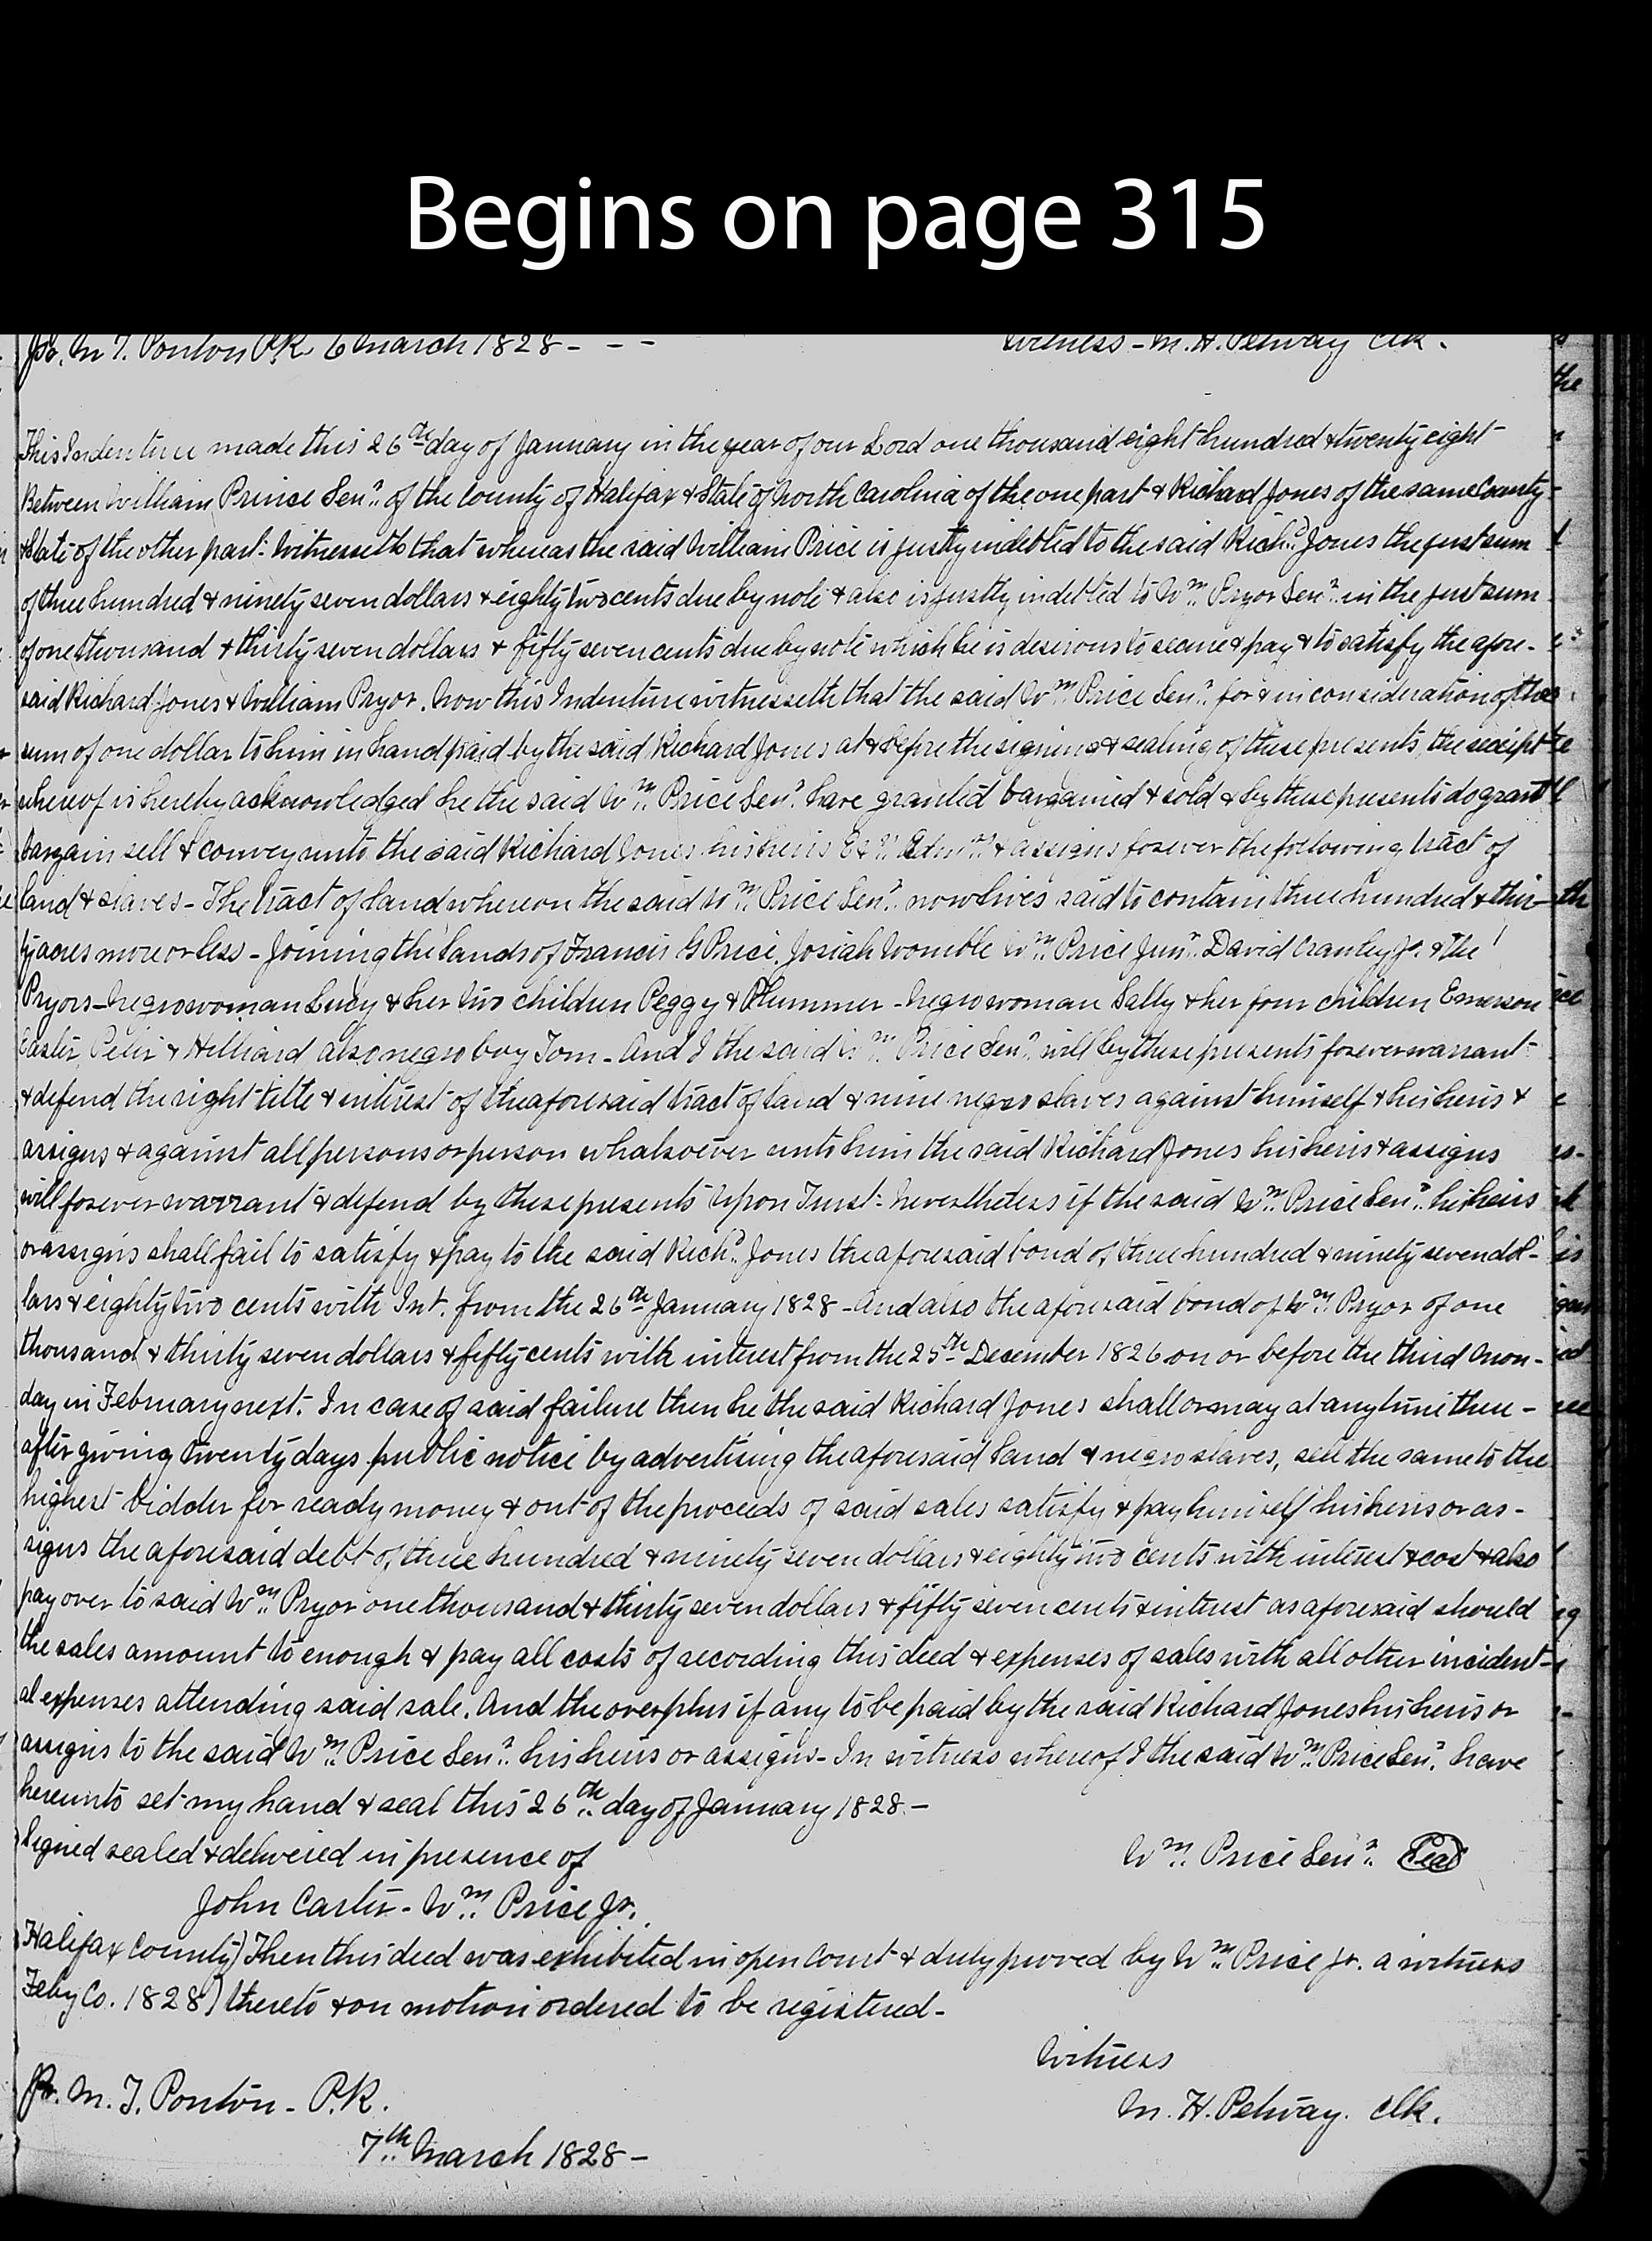 Begins on page 315
Jr. M T. Ponton P.R. 6 March 1828 - - -
Witness - M. H. Petway Clk.
the
This Indenture made this 26th day of January in the year of our Lord one thousand eight hundred & twenty eight
Between William Prince Senr. of the County of Halifax & State of North Carolina of the one part & Richard Jones of the same County
& State of the other part: Witnesseth that whereas the said William Price is justly indebted to the said Richd. Jones the just sum
of three hundred & ninety seven dollars & eighty two cents due by note & also is justly indebted to Wm. Pryor Senr. in the just sum
of one thousand & thirty seven dollars & fifty seven cents due by note which he is desirous to secure & pay & to satisfy the afore-
said Richard Jones & William Pryor. Now this Indenture witnesseth that the said Wm. Price Senr. for & in consideration of the
sum of one dollar to him in hand paid by the said Richard Jones at & before the signing & sealing of these presents, the receipt
whereof is hereby acknowledged he the said Wm. Price Senr. have granted bargained & sold & by these presents do grant
bargain sell & convey unto the said Richard Jones his heirs Exrs. Admrs. & assigns forever the following tract of
land & slaves - The tract of land whereon the said Wm. Price Senr. now lives said to contain three hundred & thir-
ty acres more or less - Joining the lands of Francis G Price, Josiah Womble Wm. Price Junr. David Crawley Jr. & the
Pryors - negro woman Lucy & her two children Peggy & Plummer - negro woman Sally & her four children Emerson
Easter, Peter & Hilliard also negro boy Tom - And I the said Wm. Price Senr. will by these presents forever warrant
& defend the right title & interest of the aforesaid tract of land & nine negro slaves against himself & his heirs &
assigns & against all persons or person whatsoever unto him the said Richard Jones his heirs & assigns
will forever warrant & defend by these presents Upon Trust: nevertheless if the said Wm. Price Senr. his heirs
or assigns shall fail to satisfy & pay to the said Richd. Jones the aforesaid bond of three hundred & ninety seven dol-
lars & eighty two cents with Int. from the 26th January 1828 - and also the aforesaid bond of Wm. Pryor of one
thousand & thirty seven dollars & fifty cents with interest from the 25th December 1826 on or before the third Mon-
day in February next. In case of said failure then he the said Richard Jones shall or may at any time there-
after giving twenty days public notice by advertising the aforesaid land & negro slaves, sell the same to the
highest bidder for ready money & out of the proceeds of said sales satisfy & pay himself his heirs or as-
signs the aforesaid debt of three hundred & ninety seven dollars & eighty two cents with interest & cost & also
pay over to said Wm. Pryor one thousand & thirty seven dollars & fifty seven cents & interest as aforesaid should
the sales amount to enough & pay all costs of recording this deed & expenses of sales with all other incident-
al expenses attending said sale. And the overplus if any to be paid by the said Richard Jones his heirs or
assigns to the said Wm. Price Senr. his heirs or assigns - In witness whereof I the said Wm. Price Senr. have
hereunto set my hand & seal this 26th. day of January 1828. -
Signed sealed & delivered in presence of
Wm. Price Senr. Seal
John Carter - Wm. Price Jr.
Halifax County) Then this deed was exhibited in open Court & duly proved by Wm. Price Jr. a witness
Feby Co. 1828) thereto & on motion ordered to be registered -
Witness
Jr. M. T. Ponton - P.R.
M. H. Petway. Clk.
7th. March 1828 -